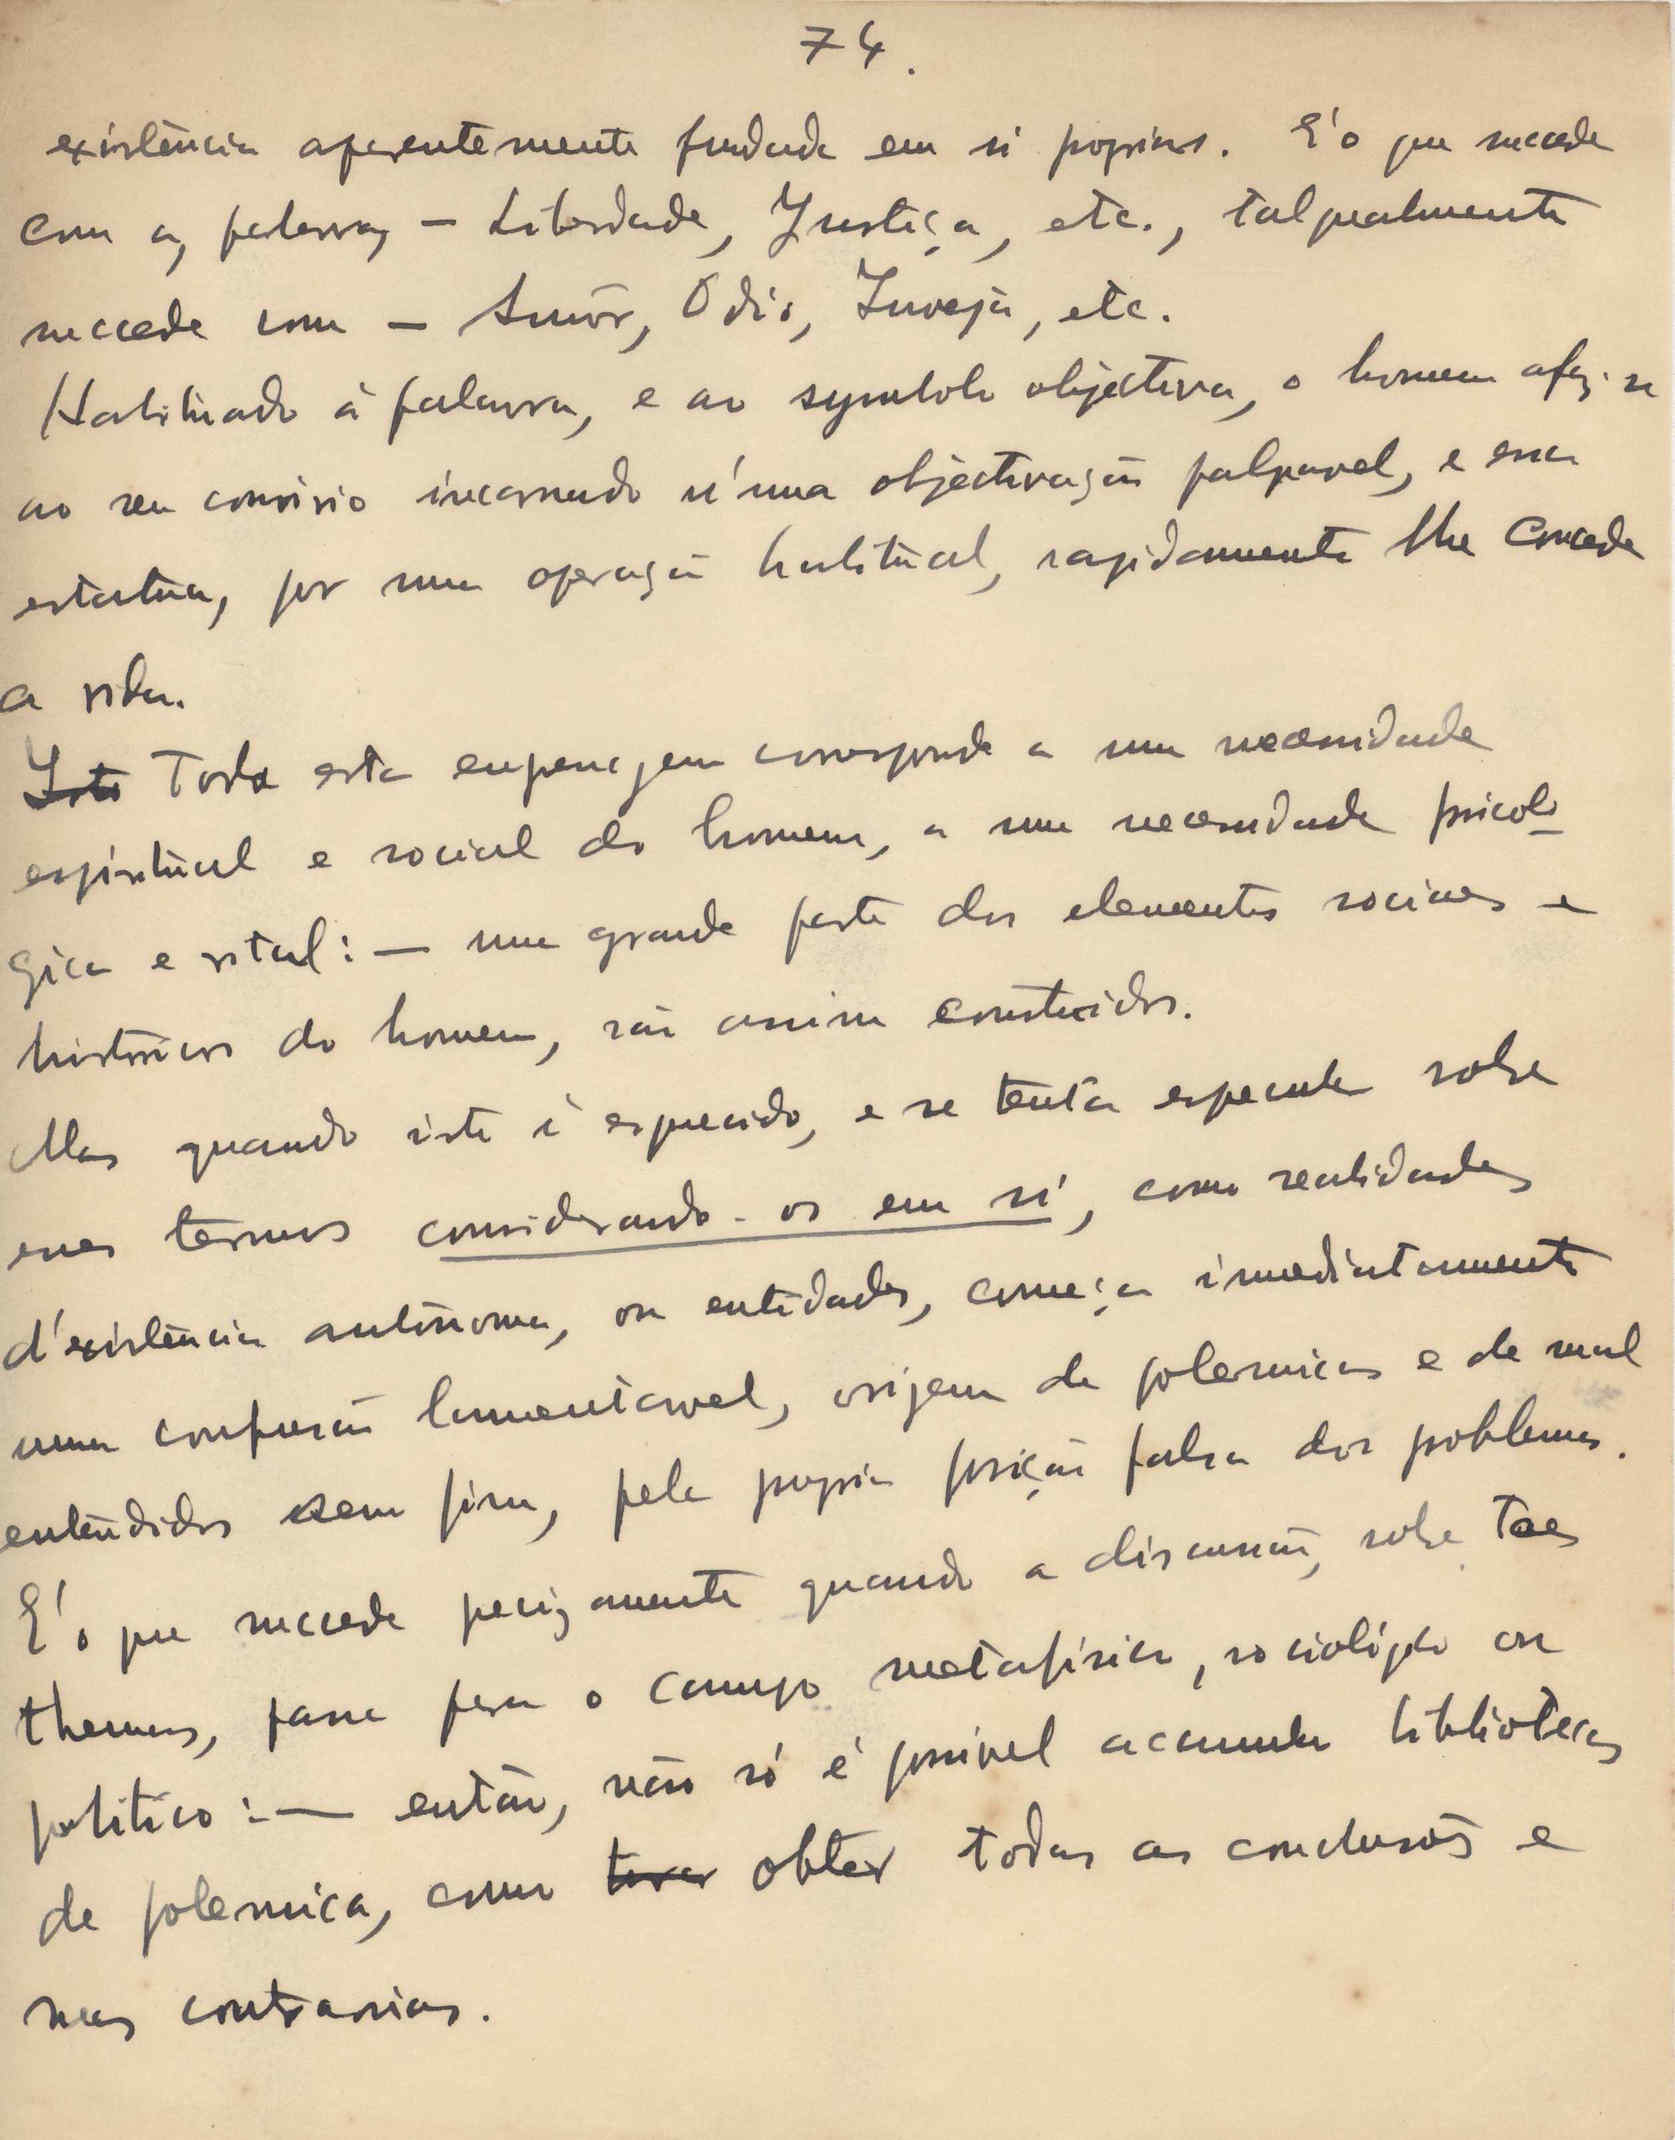 74.
existência aparentemente fundada em si proprios. E' o que succede
com as palavras — Liberdade, Justiça, etc., talqualmente
succede com — Amôr, Odio, Inveja, etc.
Habituado á palavra, e ao symbolo objectiva, o homem afaz-se
ao seu convivio incarnado n'uma objectivação palpavel, e essa
estatua, por uma operação habitual, rapidamente lhe concede
a vida.
Isto Toda esta engrenagem corresponde a uma necessidade
espiritual e social do homem, a uma necessidade psicolo-
gica e vital: — uma grande parte dos elementos sociaes e
historicos do homem, são assim construidos.
Mas quando isto é esquecido, e se tenta especular sobre
esses termos considerando-os em si, como realidades
d'existência autónoma, ou entidades, começa immediatamente
uma confusão lamentavel, origem de polemicas e de mal
entendidos sem fim, pela propria posição falsa dos problemas.
E' o que succede precizamente quando a discussão, sobre taes
themas, passa para o campo metafisico, sociológico ou
politico: — então, não só é possivel accumular bibliotecas
de polemica, como tirar obter todas as conclusões e
suas contrarias.